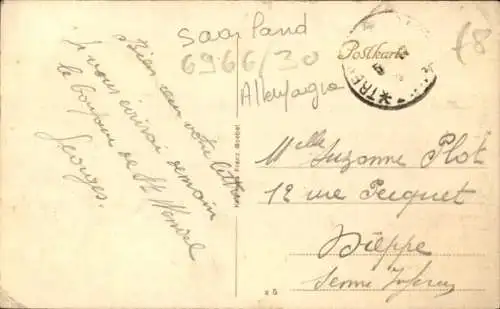 Saarland
6966/30
Postkarte
£8
Bien reçu votre lettre
je vous écrirai demain
le bonjour de St Wendel
Georges.
Melle Suzanne Plot
12 rue Pecquet
Dieppe
Seine Infre
x 5